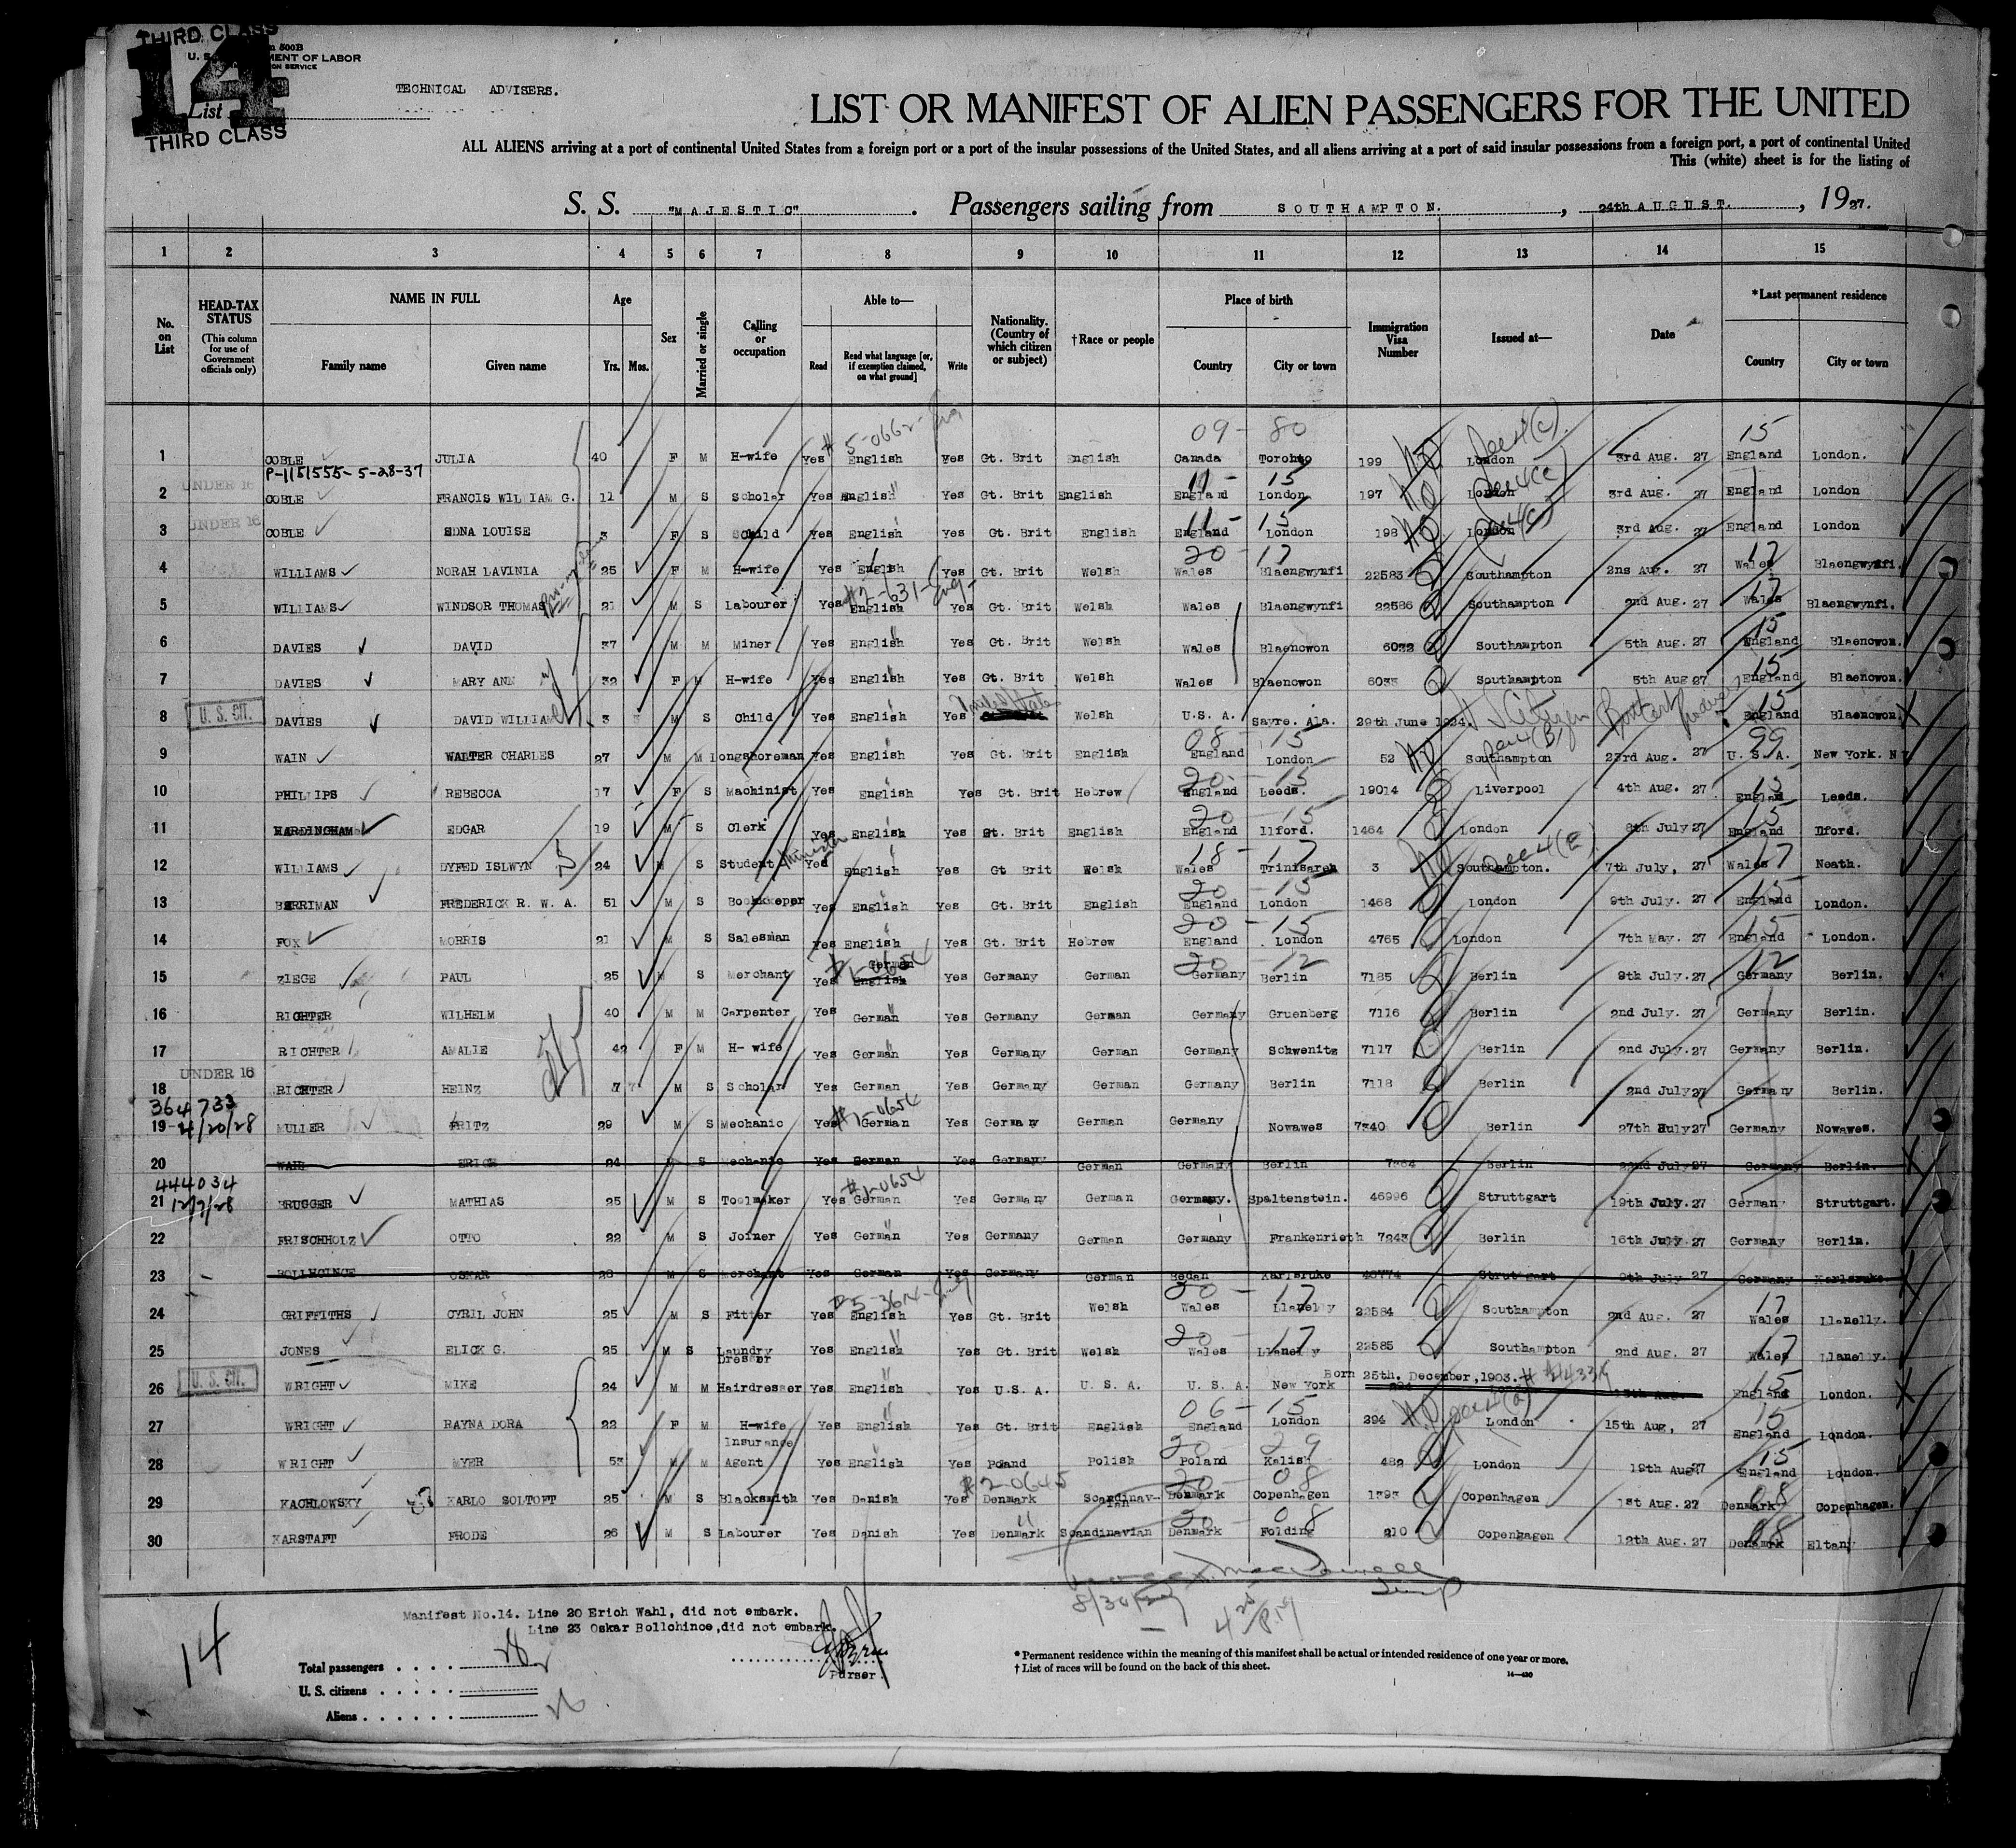 THIRD CLASS
14
500B
MENT OF LABOR
List
THIRD CLASS
TECHNICAL ADVISERS.
LIST OR MANIFEST OF ALIEN PASSENGERS FOR THE UNITED
ALL ALIENS arriving at a port of continental United States from a foreign port or a port of the insular possessions of the United States, and all aliens arriving at a port of said insular possessions from a foreign port, a port of continental United
This (white) sheet is for the listing of
S. S. "MAJESTIC". Passengers sailing from SOUTHAMPTON., 24th AUGUST., 1927.
1 2 3 4 5 6 7 8 9 10 11 12 13 14 15
No. on List
HEAD-TAX STATUS
(This column for use of Government officials only)
NAME IN FULL
Family name Given name
Age
Yrs. Mos.
Sex
Married or single
Calling or occupation
Able to—
Read
Read what language [or, if exemption claimed, on what ground]
Write
Nationality. (Country of which citizen or subject)
†Race or people
Place of birth
Country City or town
Immigration Visa Number
Issued at—
Date
*Last permanent residence
Country City or town
09 - 80 15
1 COBLE JULIA 40 F M H-wife Yes English Yes Gt. Brit English Canada Toronto 199 London 3rd Aug. 27 England London.
P-1151555- 5-28-37
UNDER 16
2 COBLE FRANCIS WILLIAM G. 11 M S Scholar Yes English Yes Gt. Brit English England London 197 London 3rd Aug. 27 England London
UNDER 16
3 COBLE EDNA LOUISE 3 F S Child Yes English Yes Gt. Brit English England London 198 London 3rd Aug. 27 England London
4 WILLIAMS NORAH LAVINIA 25 F M H-wife Yes English Yes Gt. Brit Welsh Wales Blaengwynfi 22583 Southampton 2ns Aug. 27 Wales Blaengwynfi.
5 WILLIAMS WINDSOR THOMAS 21 M S Labourer Yes English Yes Gt. Brit Welsh Wales Blaengwynfi 22586 Southampton 2nd Aug. 27 Wales Blaengwynfi.
6 DAVIES DAVID 37 M M Miner Yes English Yes Gt. Brit Welsh Wales Blaenowon 6032 Southampton 5th Aug. 27 England Blaenowon.
7 DAVIES MARY ANN 32 F M H-wife Yes English Yes Gt. Brit Welsh Wales Blaenowon 6033 Southampton 5th Aug 27 England Blaenowon.
U. S. CIT.
8 DAVIES DAVID WILLIAM 3 M S Child Yes English Yes United States Welsh U.S. A. Sayre. Ala. 29th June 1924. U S Citizen England Blaenowon.
9 WAIN WALTER CHARLES 27 M M Longshoreman Yes English Yes Gt. Brit English England London 52 Southampton 23rd Aug. 27 U. S. A. New York. N
10 PHILLIPS REBECCA 17 F S Machinist Yes English Yes Gt. Brit Hebrew England Leeds. 19014 Liverpool 4th Aug. 27 England Leeds.
11 HARDINGHAM EDGAR 19 M S Clerk Yes English Yes Gt. Brit English England Ilford. 1464 London 8th July 27 England Ilford.
12 WILLIAMS DYFED ISLWYN 24 M S Student Minister Yes English Yes Gt Brit Welsh Wales Trinisaren 3 Southampton. 7th July, 27 Wales Neath.
13 BERRIMAN FREDERICK R. W. A. 51 M S Bookkeeper Yes English Yes Gt. Brit English England London 1468 London 9th July. 27 England London.
14 FOX MORRIS 21 M S Salesman Yes English Yes Gt. Brit Hebrew England London 4765 London 7th May. 27 England London.
15 ZIEGE PAUL 25 M S Merchant Yes German English Yes Germany German Germany Berlin 7185 Berlin 9th July. 27 Germany Berlin.
16 RICHTER WILHELM 40 M M Carpenter Yes German Yes Germany German Germany Gruenberg 7116 Berlin 2nd July. 27 Germany Berlin.
17 RICHTER AMALIE 42 F M H- wife Yes German Yes Germany German Germany Schwenitz 7117 Berlin 2nd July. 27 Germany Berlin.
UNDER 16
18 RICHTER HEINZ 7 M S Scholar Yes German Yes Germany German Germany Berlin 7118 Berlin 2nd July 27 Germany Berlin.
364733
19 4/20/28 MULLER FRITZ 29 M S Mechanic Yes German Yes Germany German Germany Nowawes 7340 Berlin 27th July 27 Germany Nowawes.
20 WAHL ERICH 24 M S Mechanic Yes German Yes Germany German Germany Berlin 7364 Berlin 22nd July 27 Germany Berlin.
444034
21 12/7/28 BRUGGER MATHIAS 25 M S Toolmaker Yes German Yes Germany German Germany. Spaltenstein. 46996 Struttgart 19th July. 27 Germany Struttgart.
22 FRISCHHOLZ OTTO 22 M S Joiner Yes German Yes Germany German Germany Frankenrieth 7243 Berlin 16th July. 27 Germany Berlin.
23 BOLLHOINCE OSKAR 28 M S Merchant Yes German Yes Germany German Bedan Karlsruke 46774 Struttgart 9th July 27 Germany Karlsruke.
24 GRIFFITHS CYRIL JOHN 25 M S Fitter Yes English Yes Gt. Brit Welsh Wales Llanelly 22584 Southampton 2nd Aug. 27 Wales Llanelly.
25 JONES ELICK G. 25 M S Laundry Dresser Yes English Yes Gt. Brit Welsh Wales Llanelly 22585 Southampton 2nd Aug. 27 Wales Llanelly.
U. S. CIT.
Born 25th. December, 1903.
26 WRIGHT MIKE 24 M M Hairdresser Yes English Yes U.S. A. U. S. A. U. S. A. New York England London.
27 WRIGHT RAYNA DORA 22 F M H-wife Yes English Yes Gt. Brit English England London 294 London 15th Aug, 27 England London.
28 WRIGHT MYER 53 M M Insurance Agent Yes English Yes Poand Polish Poland Kalish 482 London 19th Aug 27 England London.
29 KACHLOWSKY KARLO SOLTOFT 25 M S Blacksmith Yes Danish Yes Denmark Scandinavian Denmark Copenhagen 1393 Copenhagen 1st Aug. 27 Denmark Copenhagen.
30 KARSTAFT FRODE 26 M S Labourer Yes Danish Yes Denmark Scandinavian Denmark Folding 210 Copenhagen 12th Aug. 27 Denamrk Eltany
Manifest No.14. Line 20 Erich Wahl, did not embark.
Line 23 Oskar Bollohinoe, did not embark.
Purser.
14
Total passengers
U. S. citizens
Aliens
* Permanent residence within the meaning of this manifest shall be actual or intended residence of one year or more.
† List of races will be found on the back of this sheet.
14—430